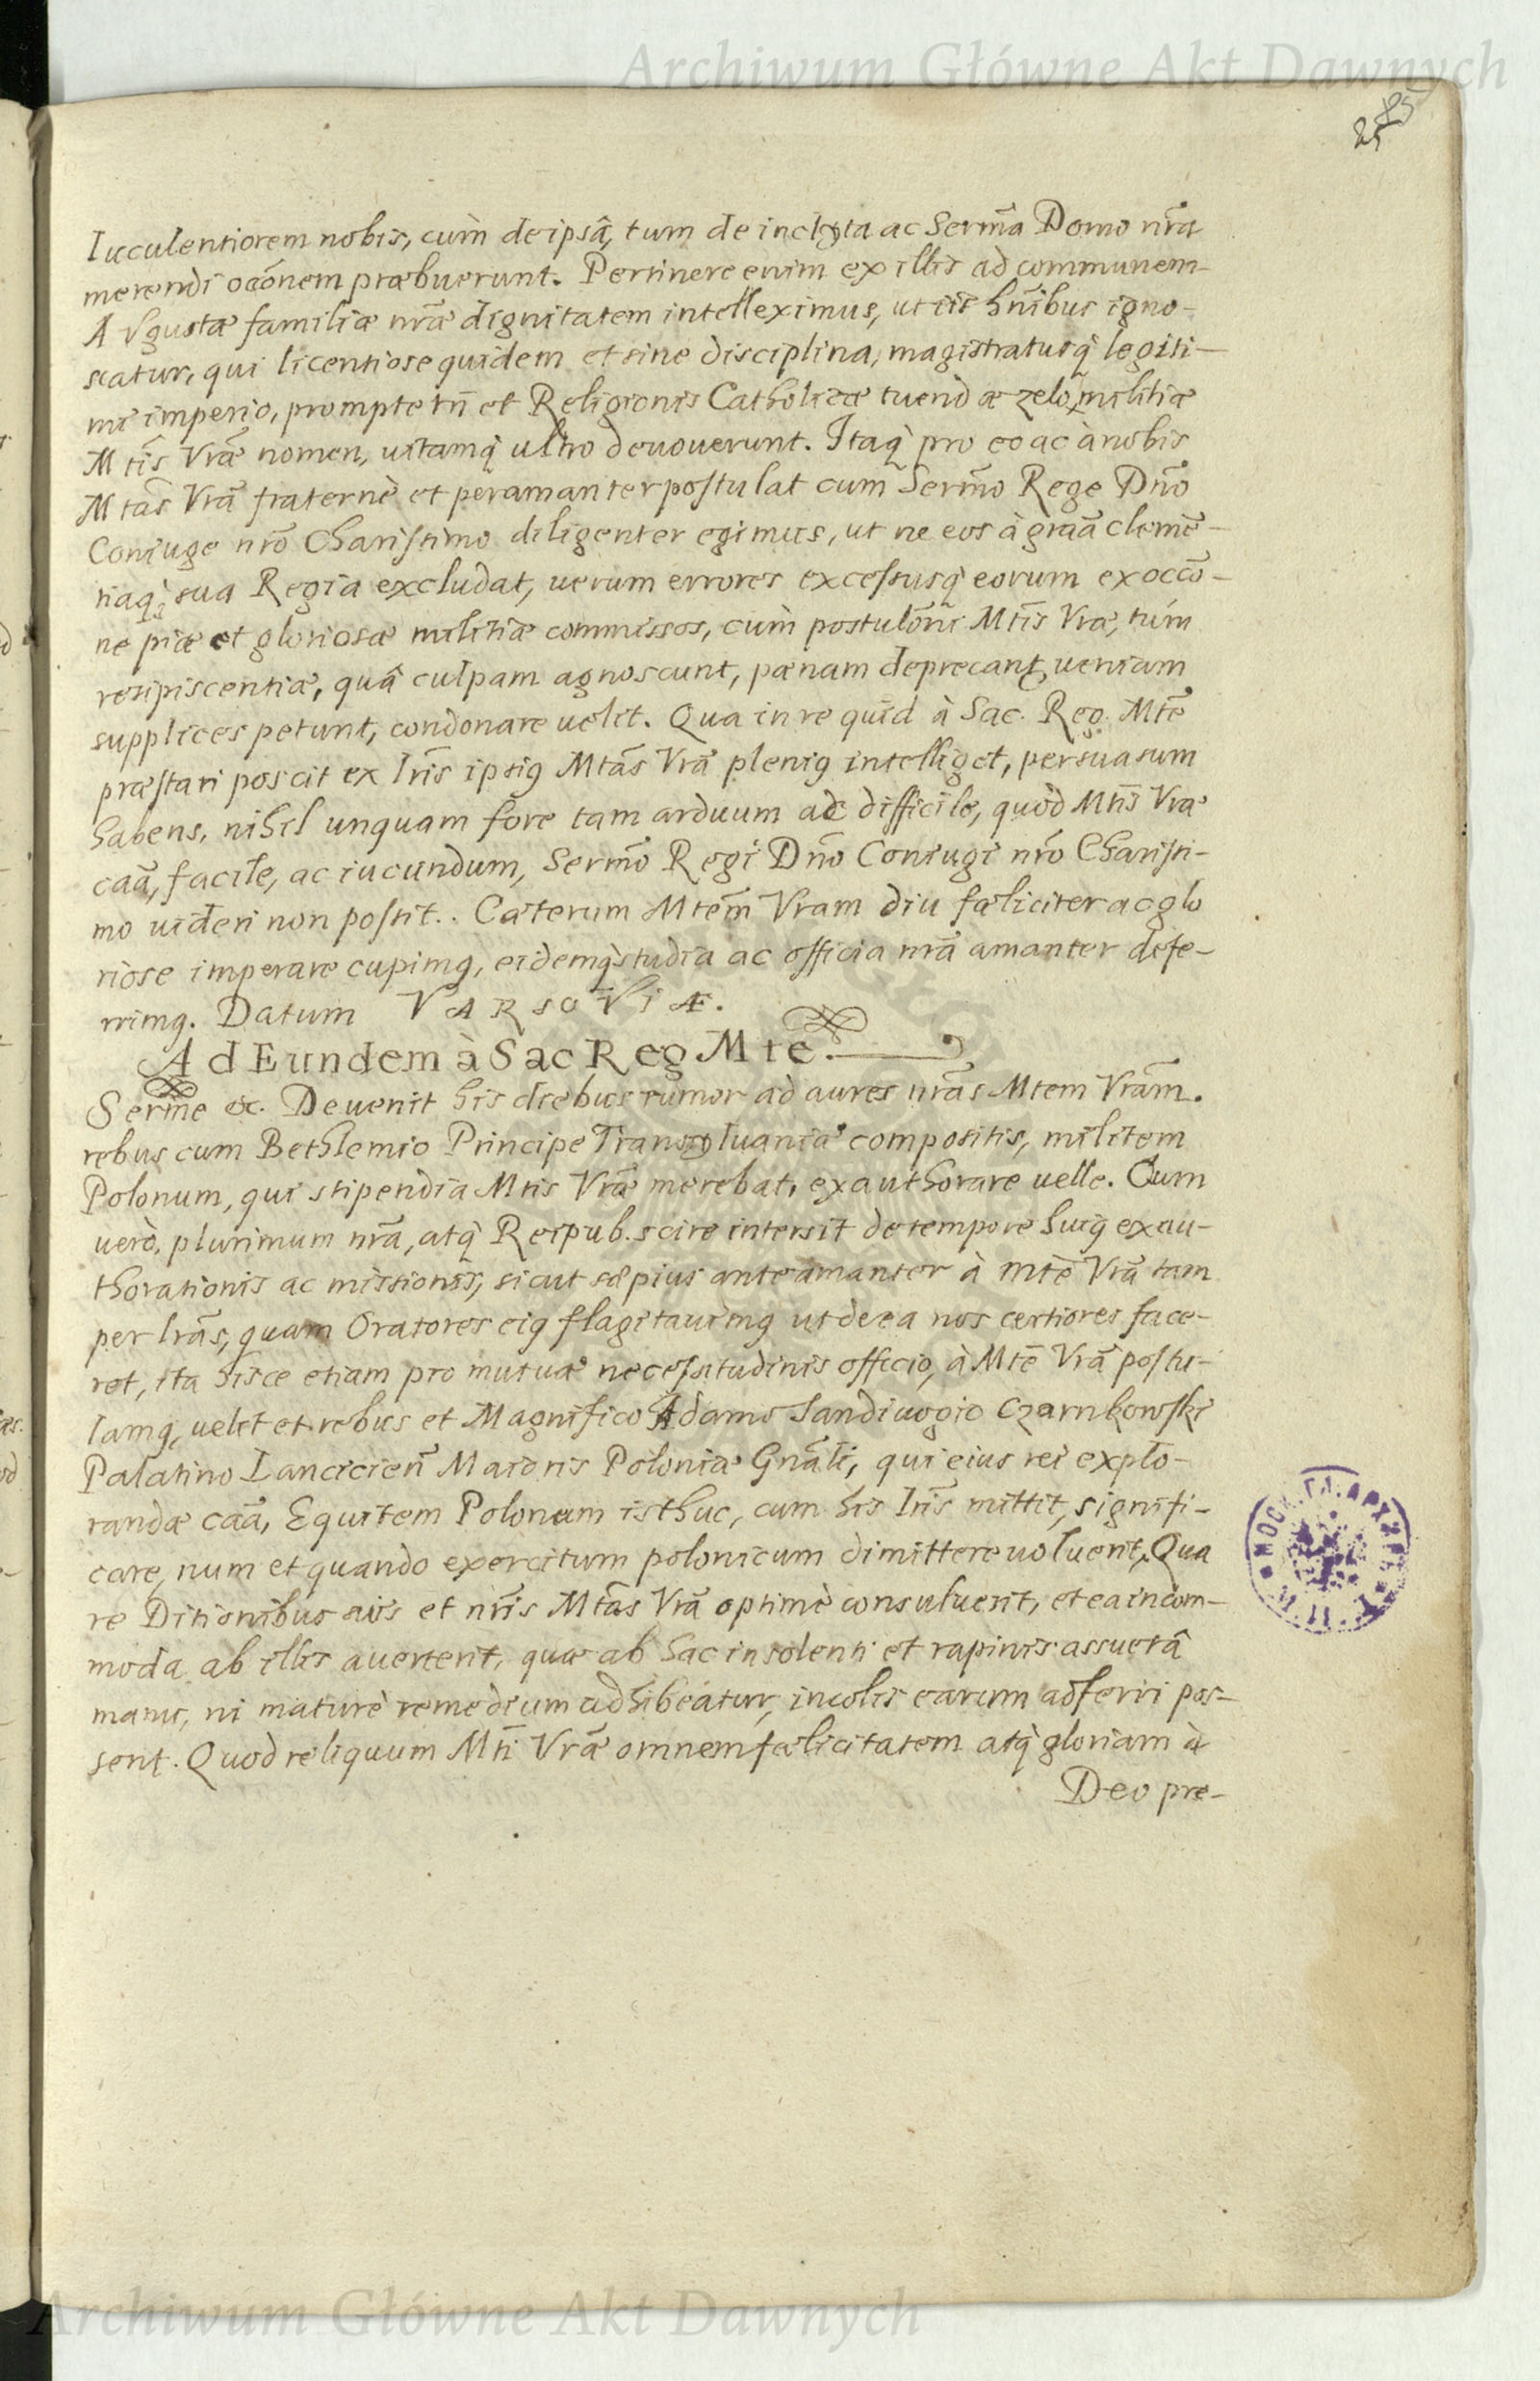 Archiwum Główne Akt Dawnych
85
25
luculentiorem nobis, cùm de ipsâ, tum de inclyta ac Serm̃a Domo nr̃a
merendi occõnem præbuerunt. Pertinere enim ex illis ad communem
Augustæ familiæ nr̃æ dignitatem intelleximus, ut iis hñibus igno-
scatur, qui licentiose quidem et sine disciplina, magistratusq̀ legiti-
mi imperio, prompte tñ et Religionis Catholicæ tuendæ zelo, militiæ
Mtis Vræ nomen, uitamq̀ ultro deuouerunt. Itaq̀ pro eo ac à nobis
Mtas Vrã fraternè et peramanter postulat cum Serm̃o Rege Dño
Coniuge nr̃o Charissimo diligenter egimus, ut ne eos à grãa clemẽ-
tiaq̀ sua Regia excludat, uerum errores excessusq̀ eorum ex occõ-
ne piæ et gloriosæ militiæ commissos, cùm postulõni Mtis Vræ, tùm
resipiscentiæ, quâ culpam agnoscunt, pænam deprecant, ueniam
supplices petunt, condonare uelit. Qua in re quid à Sac. Reg. Mte
præstari poscit ex lris ipsiꝯ Mtas Vrã pleniꝯ intelliget, persuasum
habens, nihil unquam fore tam arduum ac difficile, quòd Mtis Vræ
caã, facile, ac iucundum, Serm̃o Regi Dño Coniugi nr̃o Charissi-
mo uideri non possit. Cæterum Mtem Vram diu fæliciter ac glo
riose imperare cupimꝯ, eidemq̀ studia ac officia nr̃a amanter defe-
rimꝯ. Datum VARSOVIÆ.
Ad Eundem à Sac Reg Mte.
Serm̃e &c. Deuenit his diebus rumor ad aures nr̃as Mtem Vram.
rebus cum Bethlemio Principe Transyluaniæ compositis, militem
Polonum, qui stipendia Mtis Vræ merebat, exauthorare uelle. Cum
uerò, plurimum nr̃a, atq̀ Reipub. scire intersit de tempore huiꝯ exau-
thorationis ac missionis, sicut sæpius ante amanter à Mte Vrã tam
per lras, quam Oratores eiꝯ flagitauimꝯ ut de ea nos certiores face-
ret, ita hisce etiam pro mutuæ necessitudinis officio, à Mte Vrã postu-
lamꝯ, uelit et rebus et Magnifico Adamo Sandiuogio Czarnkowski
Palatino Lancicieñ Maioris Poloniæ Gnãli, qui eius rei explo-
randæ caã, Equitem Polonum isthuc, cum his lris mittit, signifi-
care, num et quando exercitum polonicum dimittere uoluerit, Qua
re Ditionibus suis et nr̃is Mtas Vrã optimè consuluerit, et ea incom-
moda ab illis auerterit, quæ ab hac insolenti et rapinis assuetâ
manu, ni maturè remedium adhibeatur, incolis earum adferri pos-
sent. Quod reliquum Mti Vræ omnem fælicitatem atq̀ gloriam à
Deo pre-
Archiwum Główne Akt Dawnych